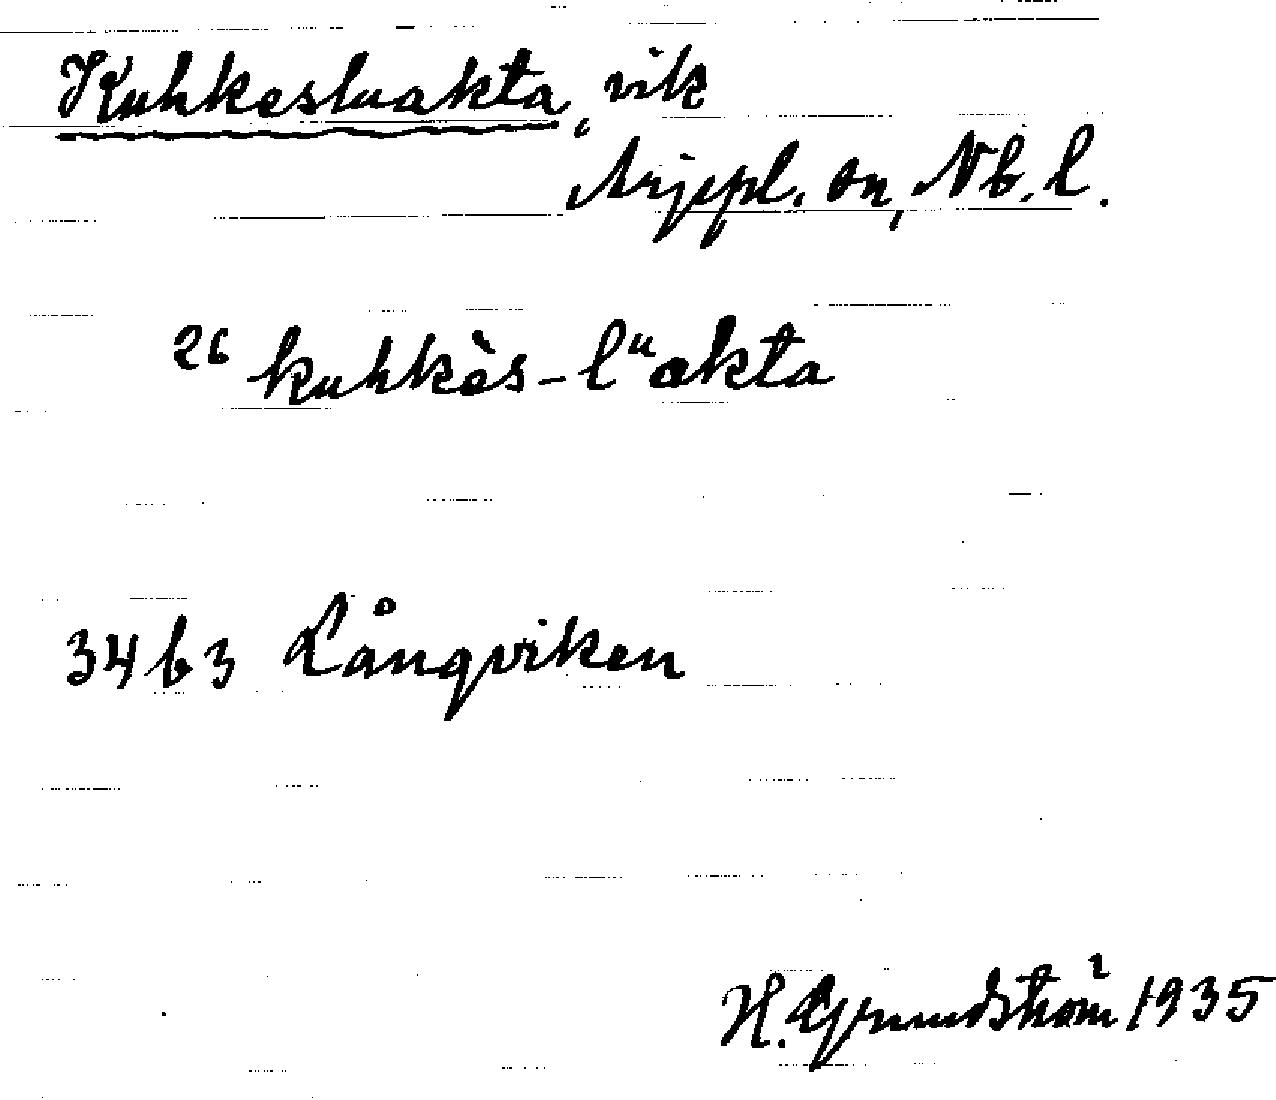 Kuhkesluakta, vik
Arjepl. sn, Nb. l.
26 kuhkès-lᵘakta
34 b 3 Långviken
H. Grundström 1935